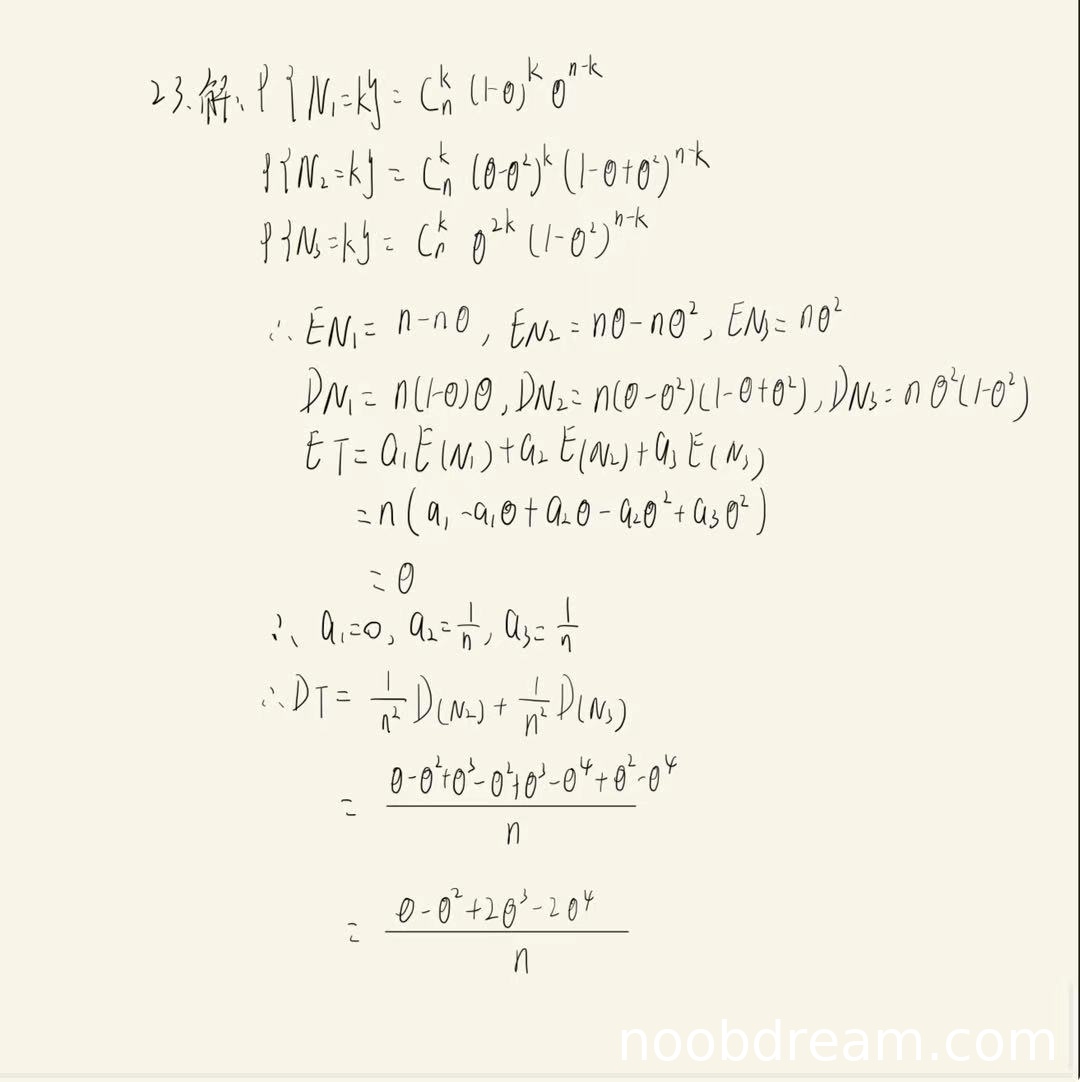 23.解: P{N₁=k}= Cₙᵏ (1-θ)ᵏ θⁿ⁻ᵏ
P{N₂=k} = Cₙᵏ (θ-θ²)ᵏ (1-θ+θ²)ⁿ⁻ᵏ
P{N₃=k}= Cₙᵏ θ²ᵏ (1-θ²)ⁿ⁻ᵏ
∴ EN₁= n-nθ, EN₂= nθ-nθ², EN₃= nθ²
DN₁= n(1-θ)θ, DN₂= n(θ-θ²)(1-θ+θ²), DN₃= nθ²(1-θ²)
ET= a₁E(N₁)+a₂E(N₂)+a₃E(N₃)
=n(a₁-a₁θ+a₂θ-a₂θ²+a₃θ²)
=θ
∴ a₁=0, a₂=1/n, a₃=1/n
∴DT= 1/n² D(N₂)+ 1/n² D(N₃)
= (θ-θ²+θ³-θ²+θ³-θ⁴+θ²-θ⁴)/n
= (θ-θ²+2θ³-2θ⁴)/n
noobdream.com